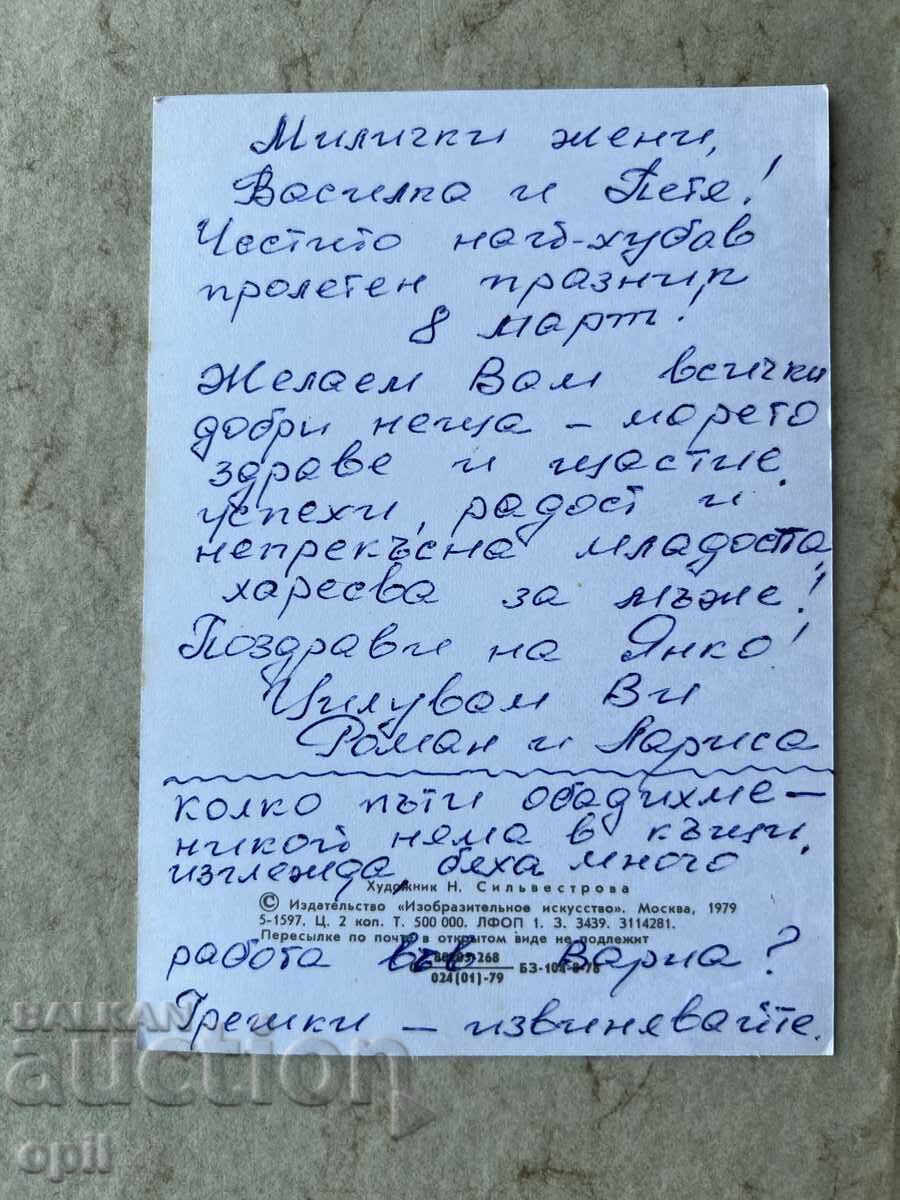 Милички жени,
Василка и Петя!
Честито най-хубав
пролетен празник
8 март!
Желаем Вам всички
добри неща – морето
здраве и щастие,
успехи, радост и
непрекъсна младоста,
харесва за мъже!
Поздрави на Янко!
Цилувам Ви
Роман и Лариса
колко пъти обадихме –
никой няма в къщи,
изглежда, бяха много
Художник Н. Сильвестрова
© Издательство «Изобразительное искусство». Москва, 1979
5-1597. Ц. 2 коп. Т. 500 000. ЛФОП 1. З. 3439. 3114281.
Пересылке по почте в открытом виде не подлежит
работа във Варна?
024(01)-79
Грешки – извинявайте.
BALKAN
auction
opil